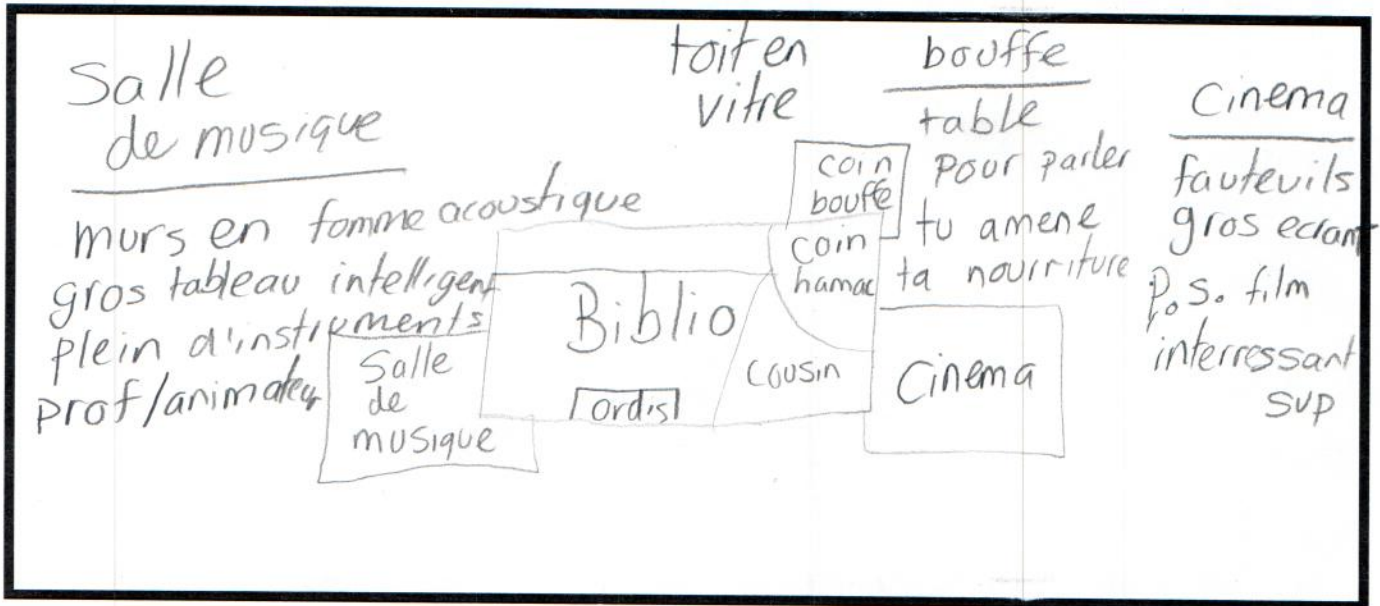 Salle
de musique
murs en fomme acoustique
gros tableau intelligent
plein d'instruments
prof/animateur
toit en
vitre
bouffe
table
pour parler
tu amene
ta nourriture
Cinema
fauteuils
gros ecrant
P.S. film
interressant
SVP
coin
bouffe
coin
hamac
Biblio
ordis
cousin
Salle
de
musique
Cinema